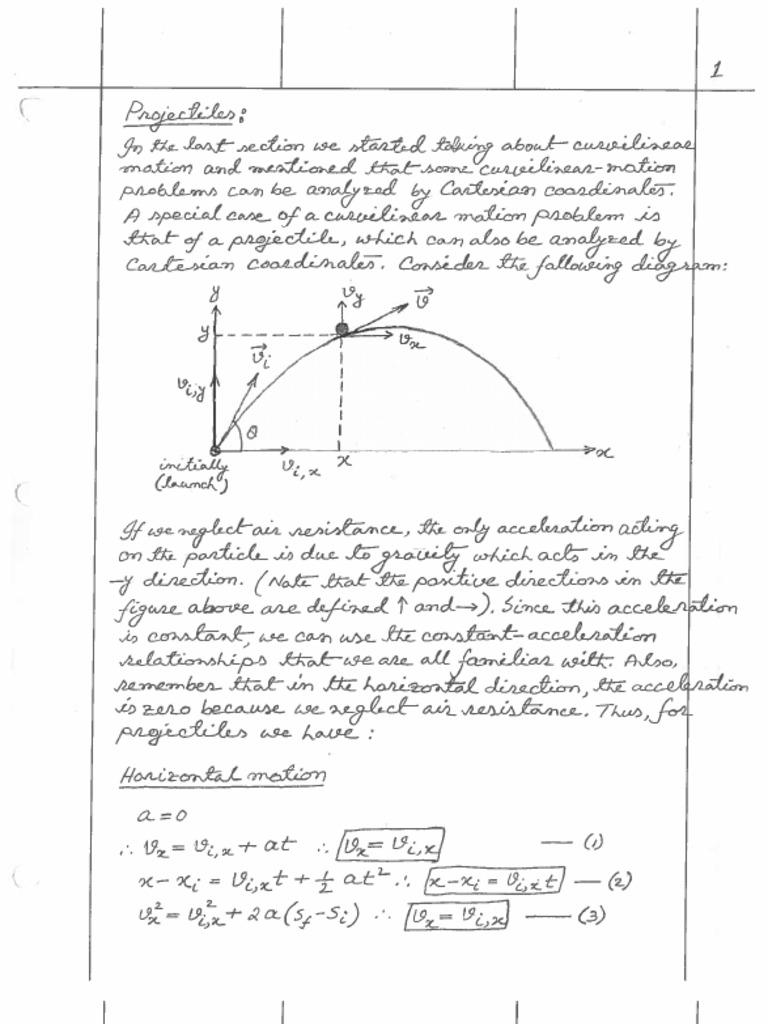 1
Projectiles:
In the last section we started talking about curvilinear
motion and mentioned that some curvilinear-motion
problems can be analyzed by Cartesian coordinates.
A special case of a curvilinear motion problem is
that of a projectile, which can also be analyzed by
Cartesian coordinates. Consider the following diagram:
y
v_y
v⃗
y
v_x
v⃗_i
v_{i,y}
θ
x
x
v_{i,x}
initially
(launch)
If we neglect air resistance, the only acceleration acting
on the particle is due to gravity which acts in the
-y direction. (Note that the positive directions in the
figure above are defined ↑ and →). Since this acceleration
is constant, we can use the constant-acceleration
relationships that we are all familiar with. Also,
remember that in the horizontal direction, the acceleration
is zero because we neglect air resistance. Thus, for
projectiles we have:
Horizontal motion
a = 0
∴ v_x = v_{i,x} + at ∴ v_x = v_{i,x} — (1)
x - x_i = v_{i,x}t + ½ at² ∴ x - x_i = v_{i,x}t — (2)
v_x² = v_{i,x}² + 2a(S_f - S_i) ∴ v_x = v_{i,x} — (3)